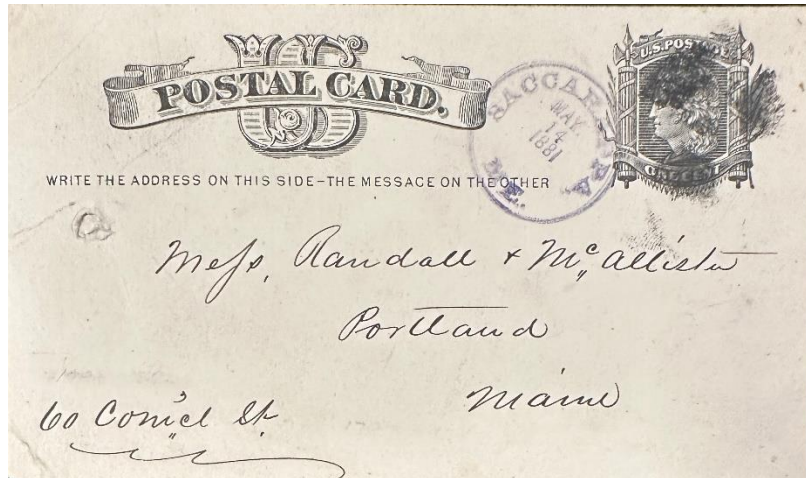 US
POSTAL CARD.
U.S. POSTAGE
ONE CENT
SACCARAPPA
MAY
14
1881
ME.
WRITE THE ADDRESS ON THIS SIDE-THE MESSAGE ON THE OTHER
Mess, Randall & McAllister
Portland
Maine
60 Com'cl St.